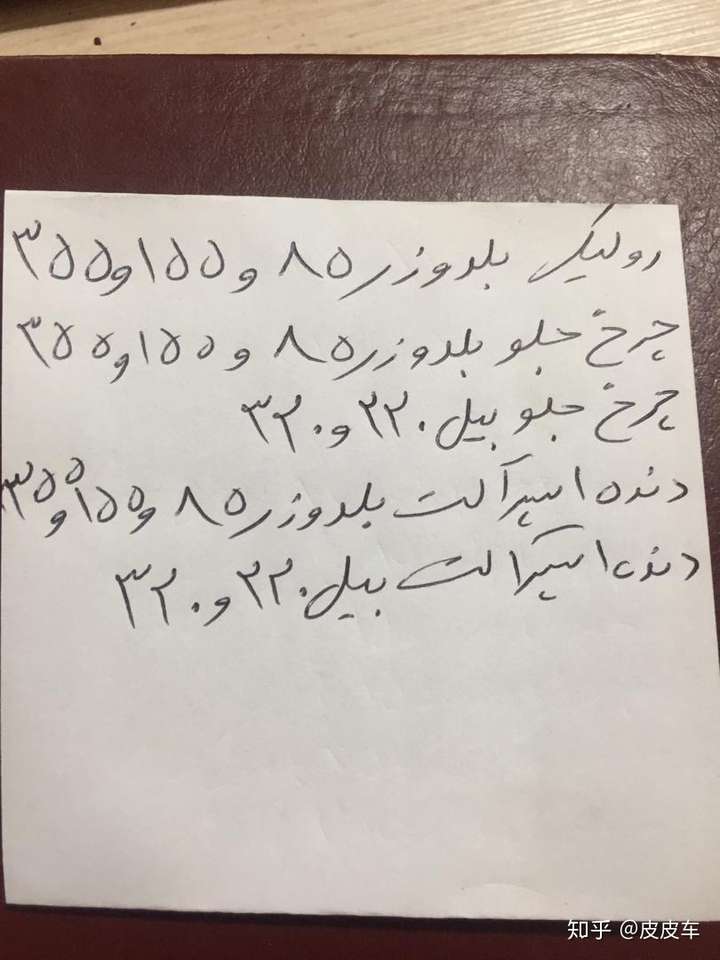 رولیک بلدوزر ۸۵ و ۱۵۵ و ۳۵۵
چرخ جلو بلدوزر ۸۵ و ۱۵۵ و ۳۵۵
چرخ جلو بیل ۲۲۰ و ۳۲۰
دنده اسپراکت بلدوزر ۸۵ و ۱۵۵ و ۳۵۵
دنده اسپراکت بیل ۲۲۰ و ۳۲۰
知乎 @皮皮车